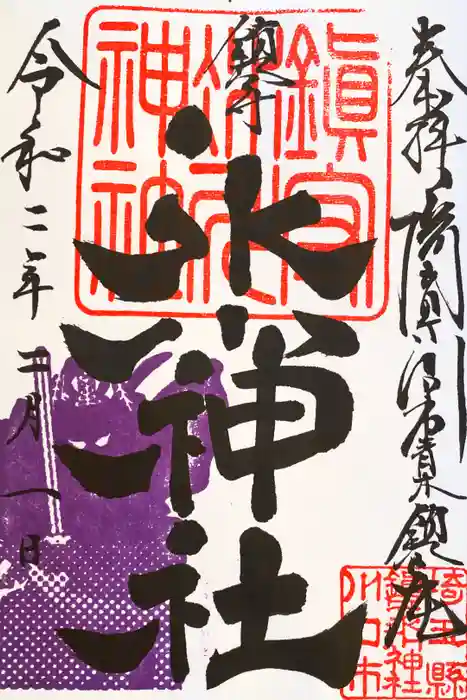 奉拝 埼玉県川口市青木鎮座
鎮守
氷川神社
令和二年 二月一日
鎮守氷川神社
埼玉縣
鎮守神社
川口市